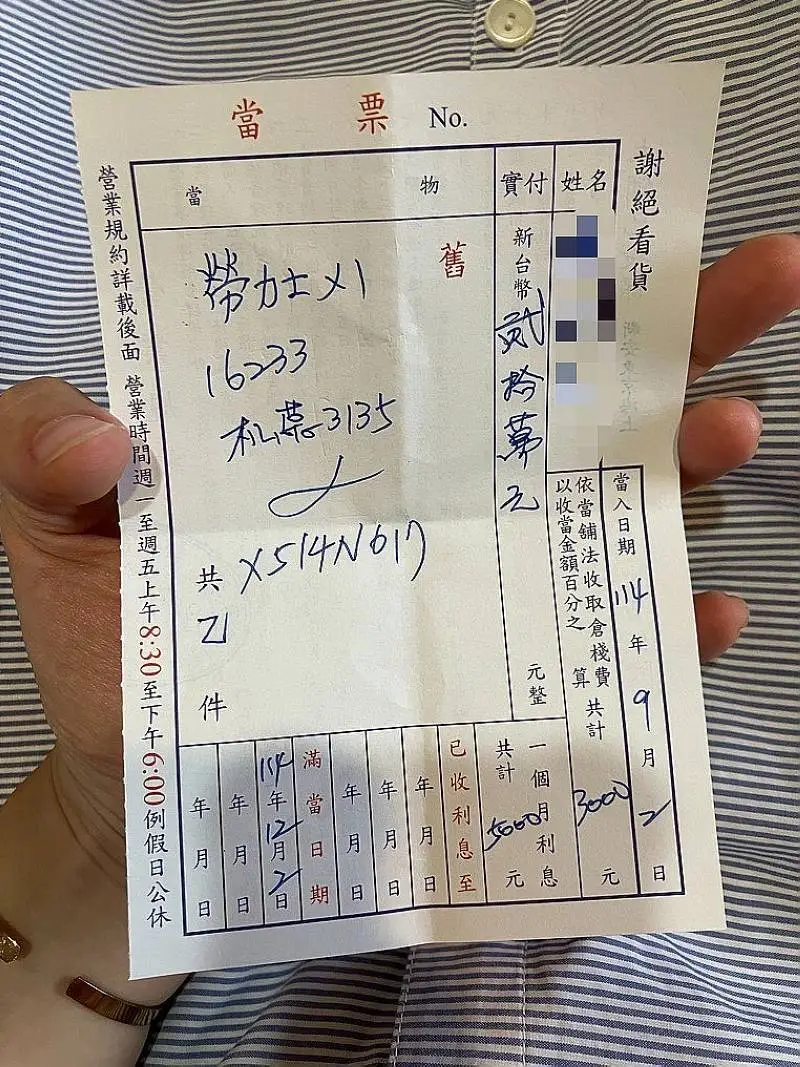 當票 No.
謝絕看貨
姓名
當入日期 114年9月2日
依當舖法收取倉棧費
以收當金額百分之 算
共計 3000 元
實付
新台幣 貳拾萬元
元整
一個月利息
共計 5000 元
當物
舊
勞力士X1
16233
机芯3135
X514N617
共乙件
已收利息至
年月日
年月日
年月日
滿當日期
114年12月2日
年月日
年月日
營業規約詳載後面 營業時間週一至週五上午8:30至下午6:00例假日公休